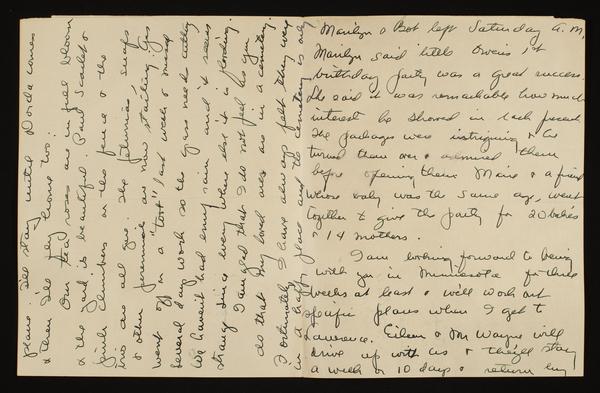 Marilyn & Bob left Saturday a.m.
Marilyn said little Owen's 1st
birthday party was a great success.
She said it was remarkable how much
interest he showed in each present
The packages were intriguing & he
turned them over & admired them
before opening them. Marie & a friend
whose baby was the same age, went
together & give the party for 20 babies
& 14 mothers.
I am looking forward to being
with you in Minnesota for three
weeks at least & we'll work out
specific plans when I get to
Lawrence. Eileen & Mr Wayne will
drive up with us & they'll stay
a week or 10 days & return by
plane. I'll stay until Dorda comes
& then I'll fly home too.
Our tea roses are in full bloom
& the yard is beautiful. Paul Scarlet
climbers on the fence & the
iris are all gone. The petunias, snaps
& other perennials are now starting. Gas
went off on a "toot" last week & missed
several days work so the grass needs cutting
We haven't had any rain and it seems
strange since every where else it is flooding.
I am glad that I do not feel as you
do that my loved ones are in a cemetery.
Fortunately I have always felt they were
in a happy place and the cemetery is only